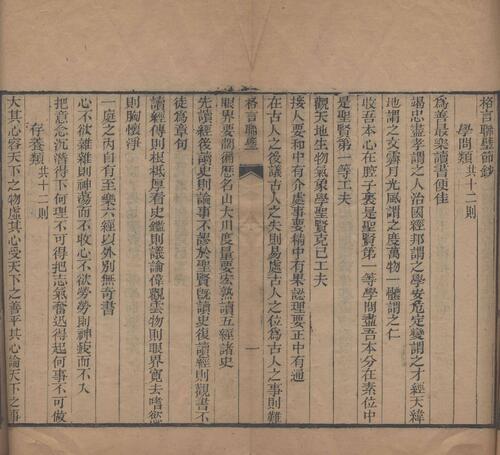 格言聯璧節鈔
學問類 共十二則
為善最樂讀書便佳
竭忠盡孝謂之人治國經邦謂之學安危定變謂之才經天緯
地謂之文霽月光風謂之度萬物一體謂之仁
收吾本心在腔子裏是聖賢第一等學問盡吾本分在素位中
是聖賢第一等工夫
觀天地生物氣象學聖賢克己工夫
接人要和中有介處事要精中有果認理要正中有通
在古人之後議古人之失則易處古人之位為古人之事則難
格言聯璧
一
眼界要闊徧歷名山大川度量要宏熟讀五經諸史
先讀經後讀史則論事不謬於聖賢既讀史復讀經則觀書不
徒為章句
讀經傳則根柢厚看史鑑則議論偉觀雲物則眼界寬去嗜慾
則胸懷淨
一庭之內自有至樂六經以外別無奇書
心不欲雜雜則神蕩而不收心不欲勞勞則神疲而不入
存養類 共十二則
把意念沉潛得下何理不可得把志氣奮迅得起何事不可做
大其心容天下之物虛其心受天下之善平其心論天下之事